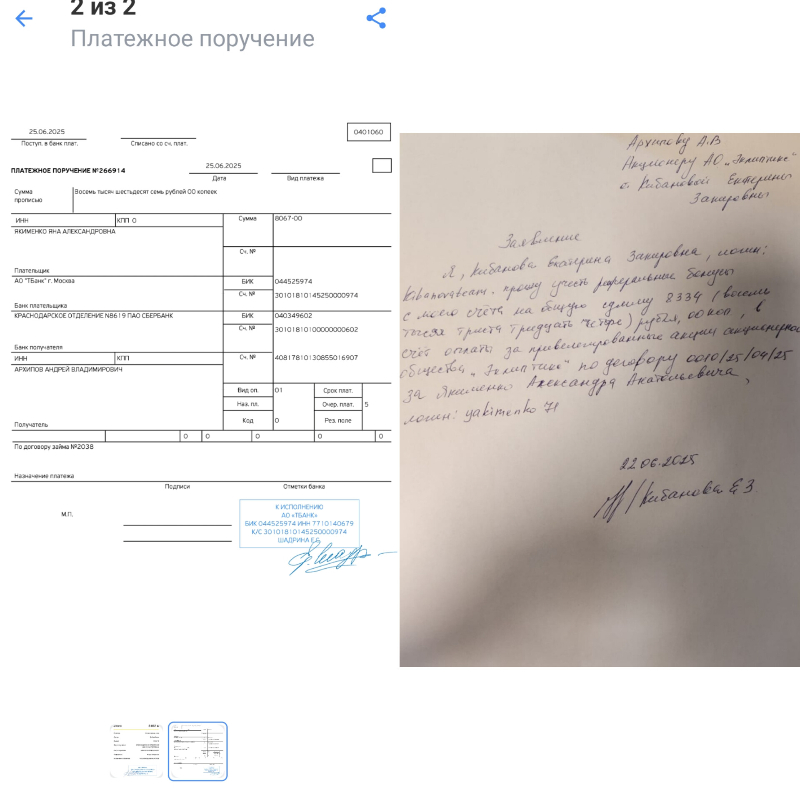 2 из 2
Платежное поручение
25.06.2025
Поступ. в банк плат.
Списано со сч. плат.
0401060
ПЛАТЕЖНОЕ ПОРУЧЕНИЕ №266914
25.06.2025
Дата
Вид платежа
Сумма прописью
Восемь тысяч шестьдесят семь рублей 00 копеек
ИНН
КПП 0
Сумма
8067-00
ЯКИМЕНКО ЯНА АЛЕКСАНДРОВНА
Сч. №
Плательщик
АО "ТБанк" г. Москва
БИК
044525974
Сч. №
30101810145250000974
Банк плательщика
КРАСНОДАРСКОЕ ОТДЕЛЕНИЕ N8619 ПАО СБЕРБАНК
БИК
040349602
Сч. №
30101810100000000602
Банк получателя
ИНН
КПП
Сч. №
40817810130855016907
АРХИПОВ АНДРЕЙ ВЛАДИМИРОВИЧ
Вид оп.
01
Срок плат.
Наз. пл.
Очер. плат.
5
Получатель
Код
0
Рез. поле
0 0 0 0 0
По договору займа №2038
Назначение платежа
Подписи
Отметки банка
М.П.
К ИСПОЛНЕНИЮ
АО «ТБАНК»
БИК 044525974 ИНН 7710140679
К/С 30101810145250000974
ШАДРИНА Е.С.
Архипову А.В
Акционеру АО „Эклиптик"
от Кибановой Екатерины
Закировны
Заявление
Я, Кибанова Екатерина Закировна, логин:
прошу учесть реферальные бонусы
с моего счёта на общую сумму 8334 (восемь
тысяч триста тридцать четыре) рубля, 00 коп, в
счёт оплаты за привилегированные акции акционерного
общества „Эклиптик" по договору 0010/25/04/25
за Якименко Александра Анатольевича,
логин: yakimenko 71
22.06.2025
Кибанова Е З